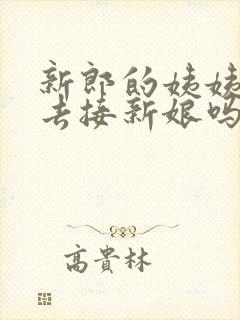 新郎的姨姨
去接新娘吗
高貴林